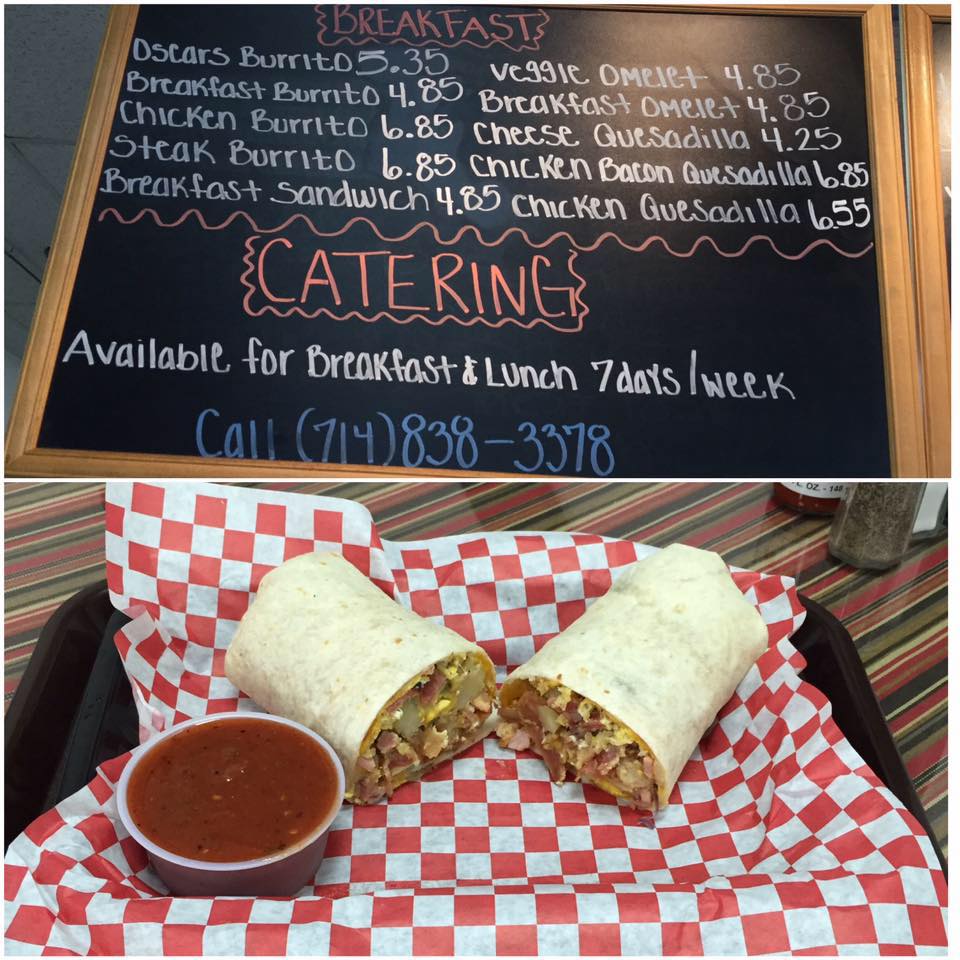 BREAKFAST
Oscars Burrito 5.35
Breakfast Burrito 4.85
Chicken Burrito 6.85
Steak Burrito 6.85
Breakfast Sandwich 4.85
Veggie Omelet 4.85
Breakfast Omelet 4.85
Cheese Quesadilla 4.25
Chicken Bacon Quesadilla 6.85
Chicken Quesadilla 6.55
CATERING
Available for Breakfast & Lunch 7days/week
Call (714)838-3378
OZ. - 148